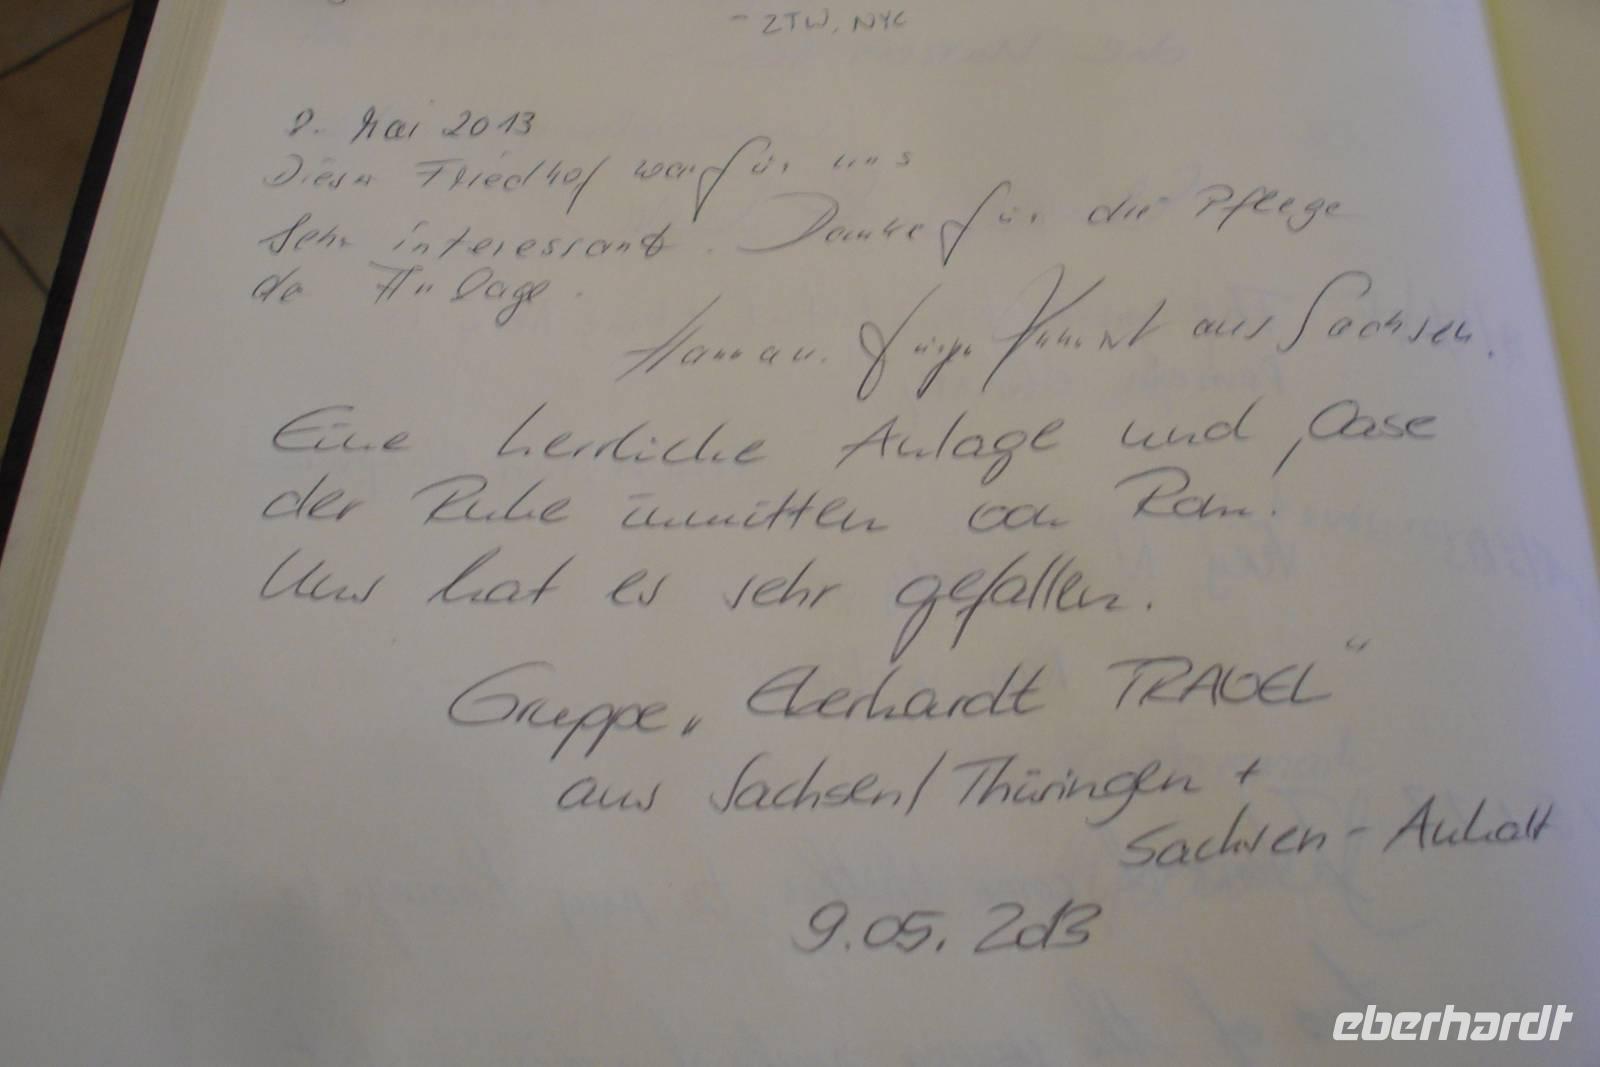 - ZTW, NYC
8. Mai 2013
Dieser Friedhof war für uns
sehr interessant. Danke für die Pflege
der Anlage.
aus Sachsen.
Eine herrliche Anlage und Oase
der Ruhe inmitten von Rom.
Uns hat es sehr gefallen.
Gruppe „Eberhardt TRAVEL"
aus Sachsen/Thüringen +
Sachsen-Anhalt
9.05.2013
eberhardt